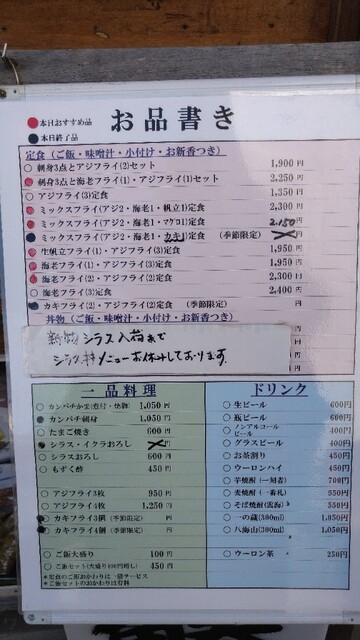 ●本日おすすめ品
●本日終了品
お品書き
定食(ご飯・味噌汁・小付け・お新香つき)
○ 刺身3点とアジフライ(2)セット 1,900円
刺身3点と海老フライ(1)・アジフライ(1)セット 2,250円
○ アジフライ(3)定食 1,350円
ミックスフライ(アジ2・海老1・帆立1)定食 2,300円
ミックスフライ(アジ2・海老1・マグロ1)定食 2,150円
ミックスフライ(アジ2・海老1・カキ1)定食 (季節限定) 円
生帆立フライ(1)・アジフライ(1)定食 1,950円
海老フライ(1)・アジフライ(3)定食 1,950円
海老フライ(2)・アジフライ(2)定食 2,300円
海老フライ(3)定食 2,400円
カキフライ(2)・アジフライ(2)定食 (季節限定) 円
丼物(ご飯・味噌汁・小付け・お新香つき)
新物 シラス入荷まで
シラス丼メニューお休みしております。
一品料理
○ カンパチかま(煮付・焼物) 1,050円
カンパチ刺身 1,050円
○ たまご焼き 600円
シラス・イクラおろし 円
○ シラスおろし 600円
○ もずく酢 450円
○ アジフライ3枚 950円
○ アジフライ4枚 1,250円
カキフライ3個(季節限定) 円
カキフライ4個(季節限定) 円
○ ご飯大盛り 100円
○ ご飯セット(大盛り100円増し) 450円
*定食のご飯おかわりは一膳サービス
*ご飯セットのおかわりは有料
ドリンク
○ 生ビール 600円
○ 瓶ビール 600円
○ ノンアルコールビール 400円
○ グラスビール 400円
○ お茶割り 450円
○ ウーロンハイ 450円
○ 芋焼酎(一刻者) 700円
○ 麦焼酎(一番札) 550円
○ そば焼酎(雲海) 550円
○ 一の蔵(300ml) 1,050円
○ 八海山(300ml) 1,050円
○ ウーロン茶 250円